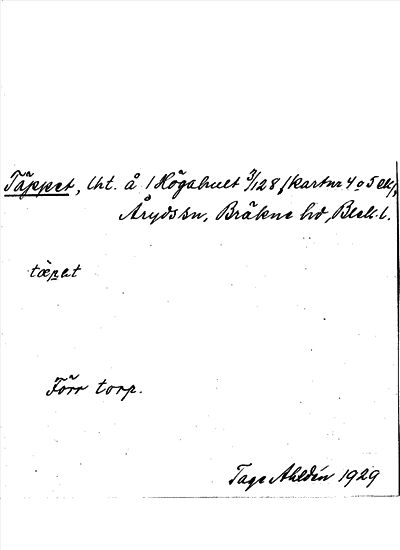 Täppet, lht. å 1 Högahult 3/128 (kartnr 4 o 5 ek),
Åryds sn, Bräkne hd, Blek. l.
tæ̀pet
Förr torp.
Tage Ahldén 1929